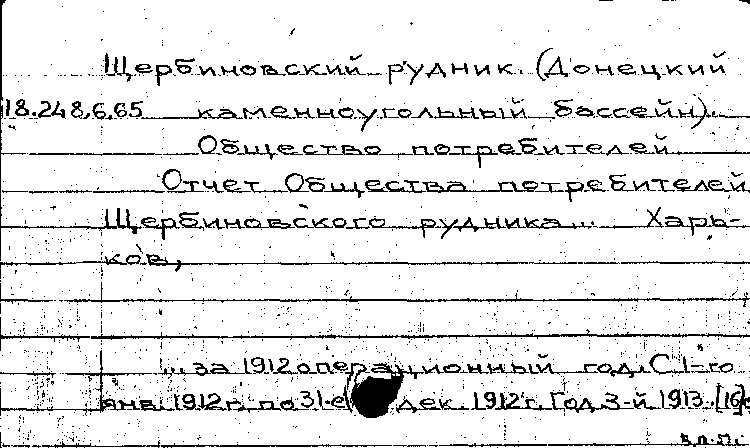 Щербиновский рудник. (Донецкий
18.248.6.65 каменноугольный бассейн).
Общество потребителей
Отчет Общества потребителей
Щербиновского рудника... Харь-
ков,
... за 1912 операционный год. С 1-го
янв. 1912 г. по 31-е дек. 1912 г. Год 3-й. 1913. [16]